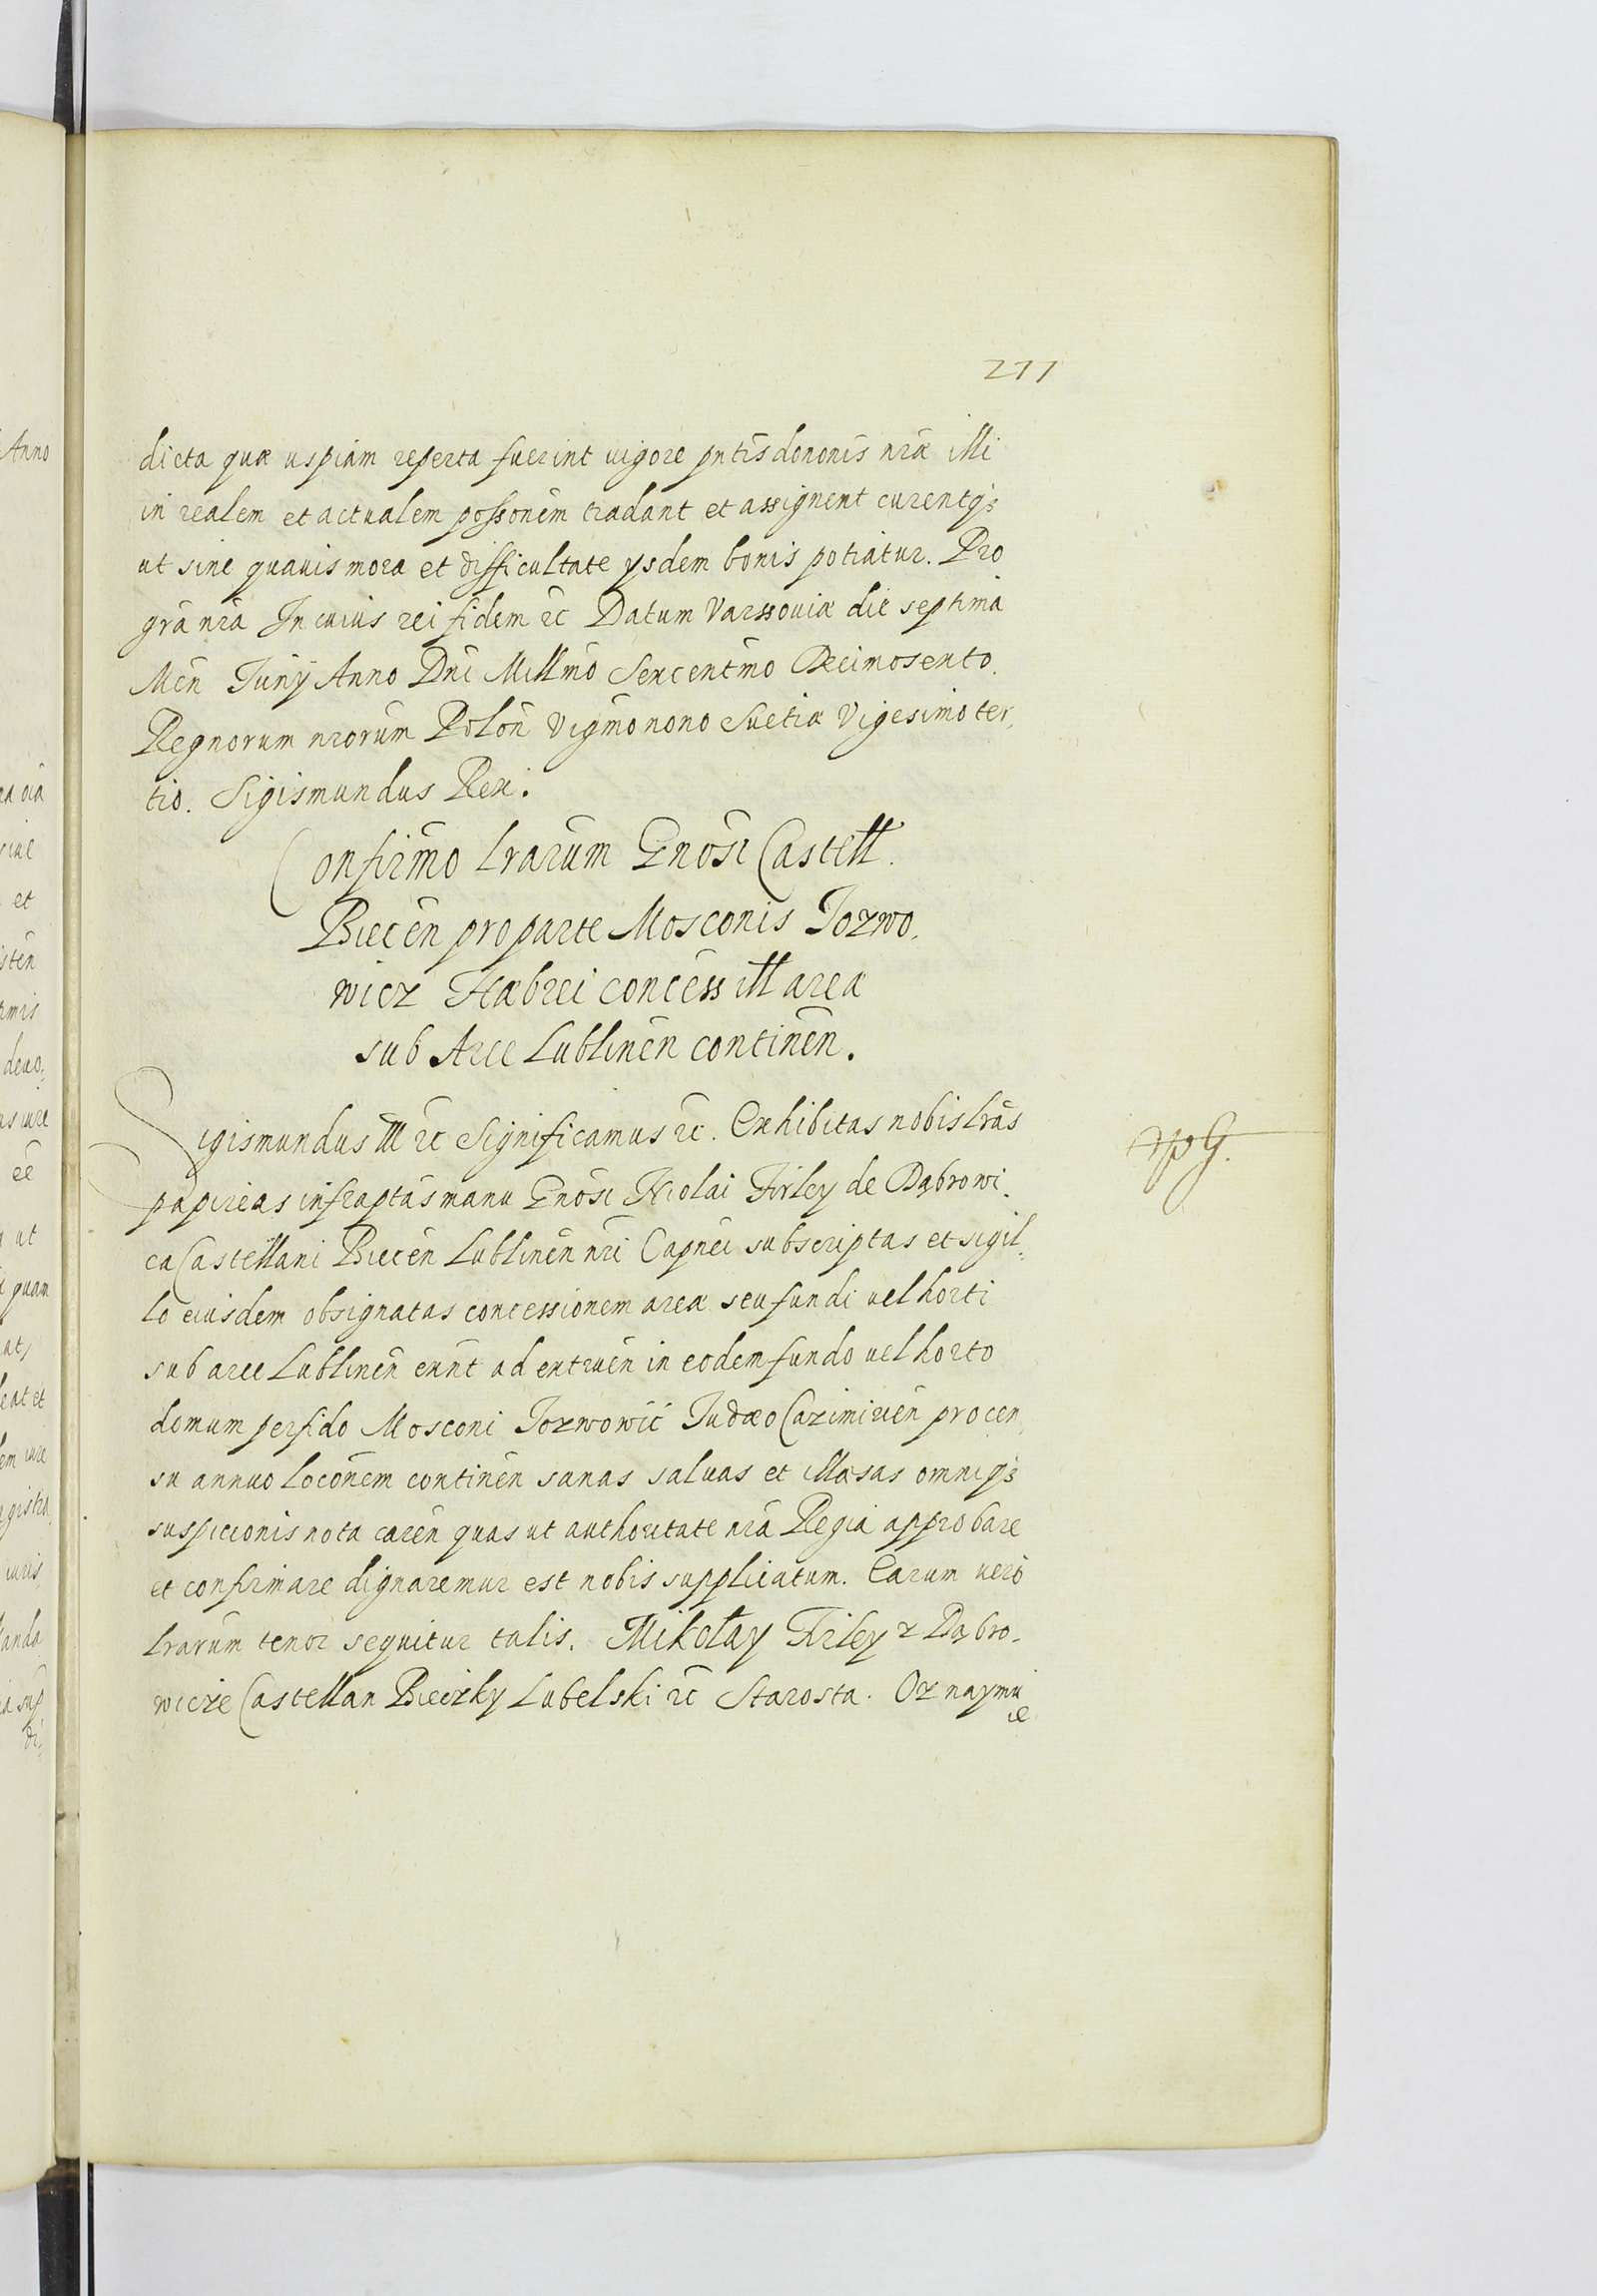 277
dicta quæ uspiam reperta fuerint uigore pntis dononis nræ illi
in realem et actualem possonem tradant et assignent curentq;
ut sine quauis mora et difficultate ysdem bonis potiatur. Pro
gra nra In cuius rei fidem etc Datum Varssouiæ die septima
Men Iuny Anno Dni Millmo Sexcentmo Decimosexto.
Regnorum nrorum Polon Vigmonono Suetiæ Vigesimoter,
tio. Sigismundus Rex.
Confirmo Lrarum Gnosi Castell.
Biecen pro parte Mosconis Jozwo,
wicz Hæbrei concess ill areæ
sub Arce Lublinen continen.
Sigismundus III etc Significamus etc. Exhibitas nobis lras
papireas infraptas manu Gnosi Nicolai Firley de Dąbrowi,
ca Castellani Biecen Lublinen nri Capnei subscriptas et sigil,
lo eiusdem obsignatas concessionem areæ seu fundi uel horti
sub arce Lublinen eunt ad extruen in eodem fundo uel horto
domum perfido Mosconi Jozwowic Judæo Cazimirien pro cen,
su annuo Loconem continen sanas saluas et illæsas omniq;
suspicionis nota caren quas ut authoritate nra Regia approbare
et confirmare dignaremur est nobis supplicatum. Earum uero
Lrarum tenor sequitur talis. Mikołay Firley z Dąbro,
wicze Castellan Bieczky Lubelski etc Starosta. Oznaymu
ie